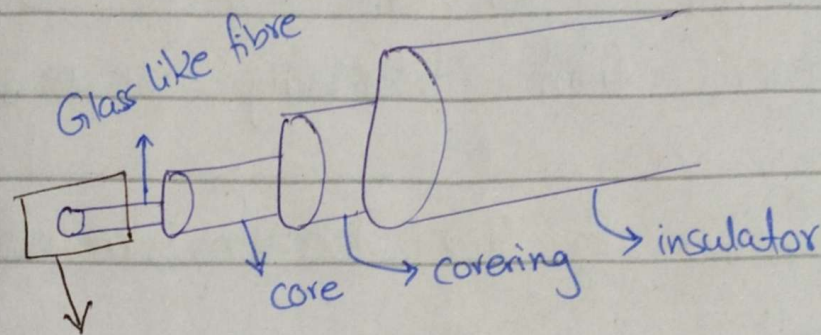 Glass like fibre
core
covering
insulator